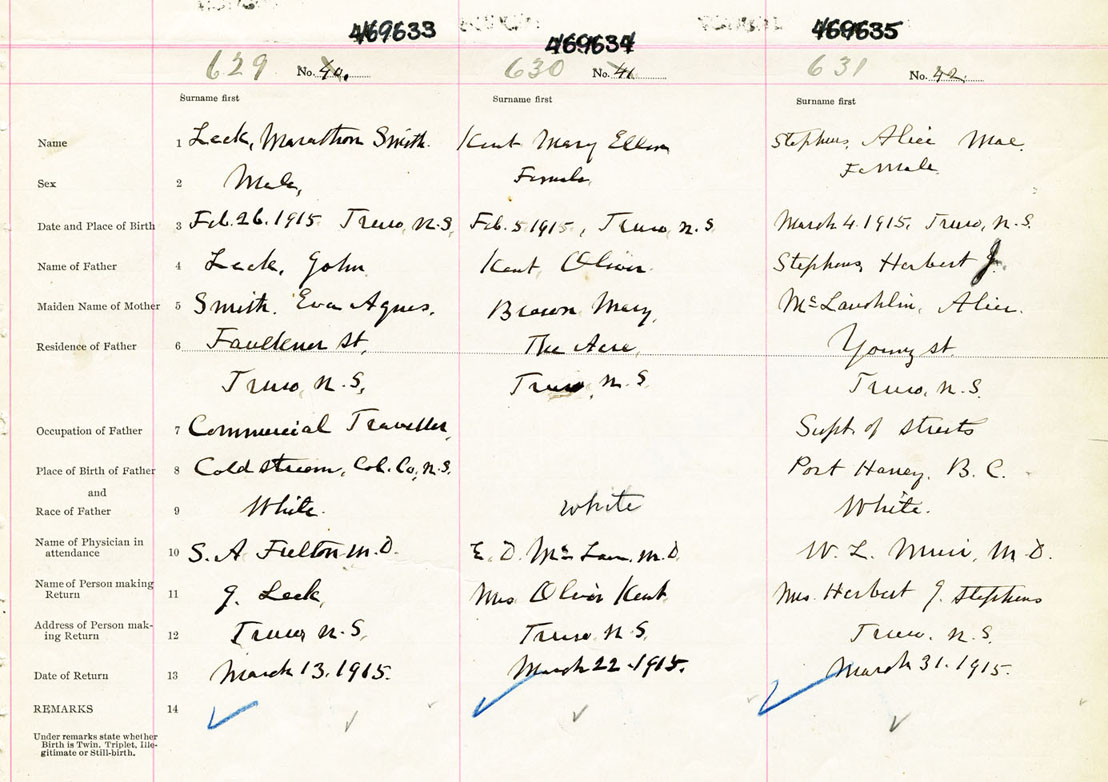 469633 469634 469635
629 No. 40. 630 No. 41 631 No. 42.
Surname first Surname first Surname first
Name 1 Leck, Marathon Smith. Kent Mary Ellen Stephens, Alice Mae.
Sex 2 Male, Female, Female.
Date and Place of Birth 3 Feb. 26. 1915 Truro, N.S. Feb. 5 1915, Truro, N.S. March 4. 1915, Truro, N.S.
Name of Father 4 Leck, John Kent Oliver. Stephens, Herbert J.
Maiden Name of Mother 5 Smith. Eva Agnes. Brown Mary, McLaughlin, Alice.
Residence of Father 6 Faulkner St, The Acre, Young St.
Truro, N.S, Truro, N.S. Truro, N.S.
Occupation of Father 7 Commercial Traveller, Supt. of Streets
Place of Birth of Father 8 Coldstream, Col. Co, N.S. Port Haney, B.C.
and
Race of Father 9 White. White White.
Name of Physician in
attendance 10 S. A Fulton M.D. E. D. McLean, M.D W. L. Muir, M.D.
Name of Person making
Return 11 J. Leck, Mrs Oliver Kent Mrs. Herbert J. Stephens
Address of Person mak-
ing Return 12 Truro N.S, Truro N.S, Truro. N.S.
Date of Return 13 March 13, 1915. March 22 - 1915. March 31. 1915.
REMARKS 14
Under remarks state whether
Birth is Twin, Triplet, Ille-
gitimate or Still-birth.